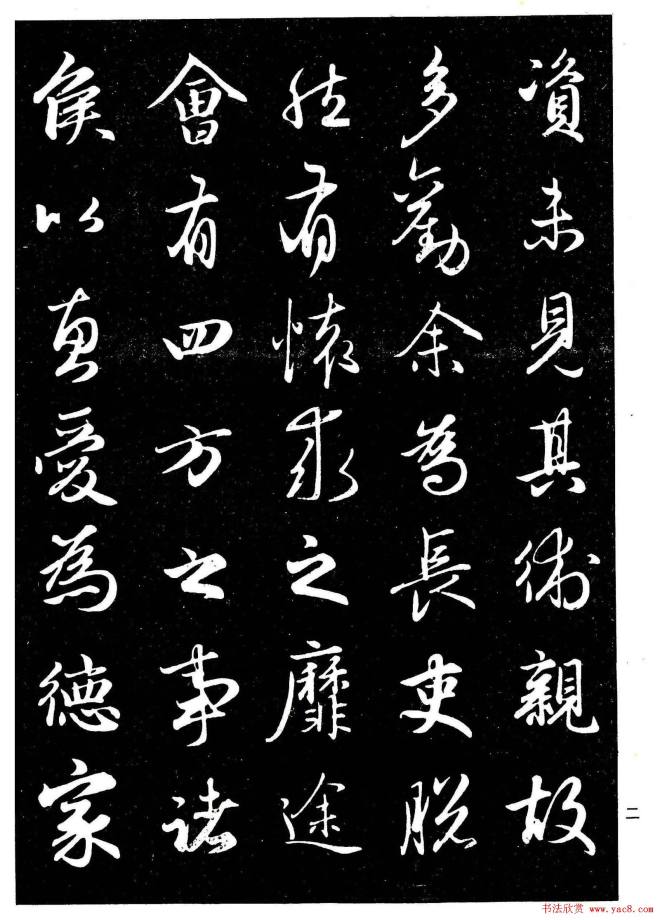 資未見其術親故
多勸余為長吏脫
然有懷求之靡途
會有四方之事諸
侯以惠愛為德家
二
书法欣赏 www.yac8.com